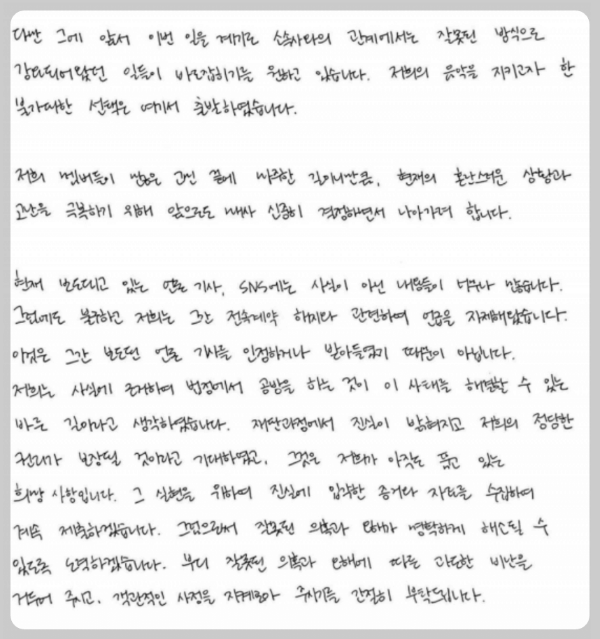 다만 그에 앞서 이번 일을 계기로 소속사와의 관계에서는 잘못된 방식으로
강요되어왔던 일들이 바로잡히기를 원하고 있습니다. 저희의 음악을 지키고자 한
불가피한 선택은 여기서 출발하였습니다.
저희 멤버들이 많은 고민 끝에 마주한 길이니만큼, 현재의 혼란스러운 상황과
고난을 극복하기 위해 앞으로도 매사 신중히 결정하면서 나아가려 합니다.
현재 보도되고 있는 언론 기사, SNS에는 사실이 아닌 내용들이 너무나 많습니다.
그럼에도 불구하고 저희는 그간 전속계약 해지와 관련하여 언급을 자제해왔습니다.
이것은 그간 보도된 언론 기사를 인정하거나 받아들였기 때문이 아닙니다.
저희는 사실에 근거하여 법정에서 공방을 하는 것이 이 사태를 해결할 수 있는
바른 길이라고 생각하였습니다. 재판과정에서 진실이 밝혀지고 저희의 정당한
권리가 보장될 것이라고 기대하였고, 그것은 저희가 아직도 품고 있는
희망 사항입니다. 그 실현을 위하여 진실에 입각한 증거와 자료를 수집하여
계속 제출하겠습니다. 그럼으로써 잘못된 의혹과 오해가 명확하게 해소될 수
있도록 노력하겠습니다. 부디 잘못된 의혹과 오해에 따른 과도한 비난을
거두어 주시고, 객관적인 사정을 자세히 주시기를 간절히 부탁드립니다.